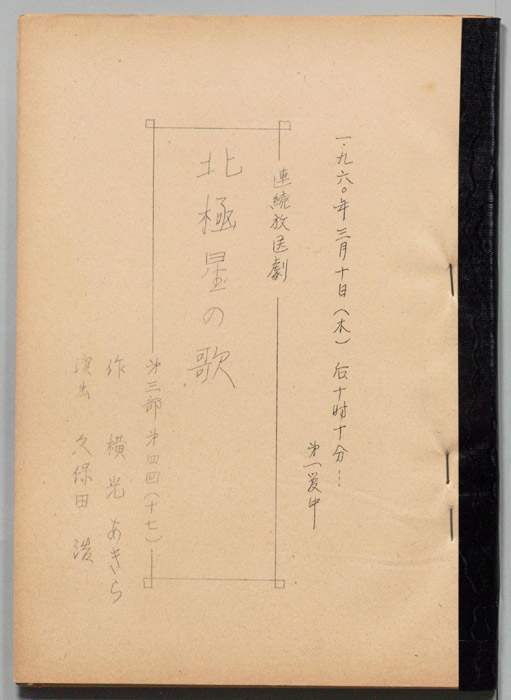 一九六〇年三月十日（木）后十时十分…
第一
連続放送劇
北極星の歌
第三部 第四回（十七）
作 横光あきら
演出 久保田 浩